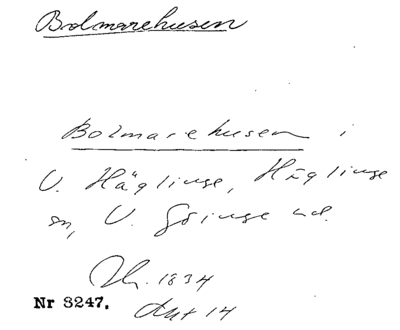 Bolmarehusen
Bolmarehusen i
V. Häglinge, Häglinge
sn, V. Göinge hd.
Lm. 1834
Nr 3247. Akt 14